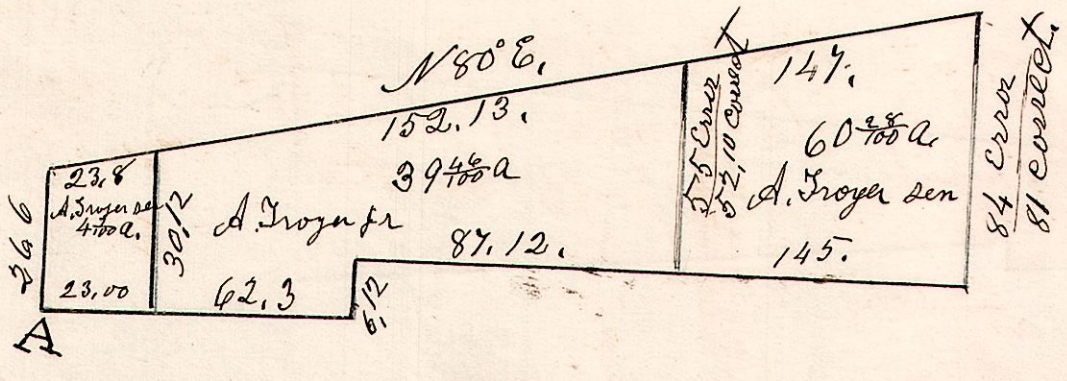 N 80° E.
152.13.
147.
23.8
A. Troyer sen
4 /100 a.
23.00
26 6
30.12
39 46/100 a
A. Troyer jr
62.3
6.12
87.12.
55 Error
52.10 Correct
60 28/100 a.
A. Troyer sen
145.
84 Error
81 correct.
A